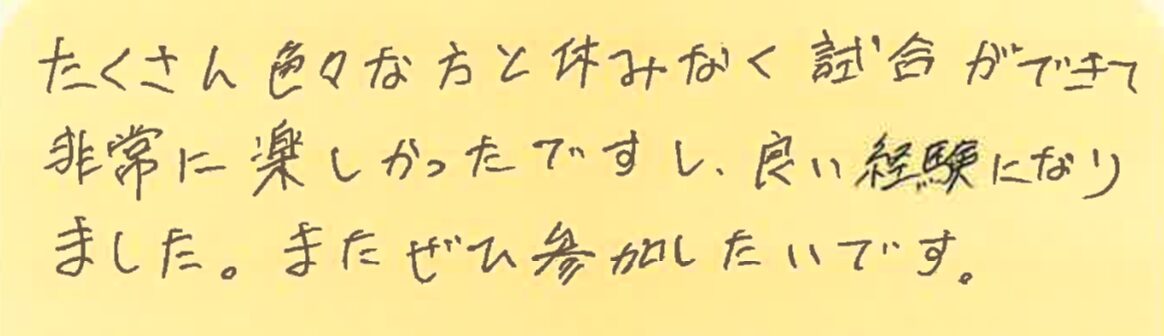 たくさん色々な方と休みなく試合ができて
非常に楽しかったですし、良い経験になり
ました。またぜひ参加したいです。